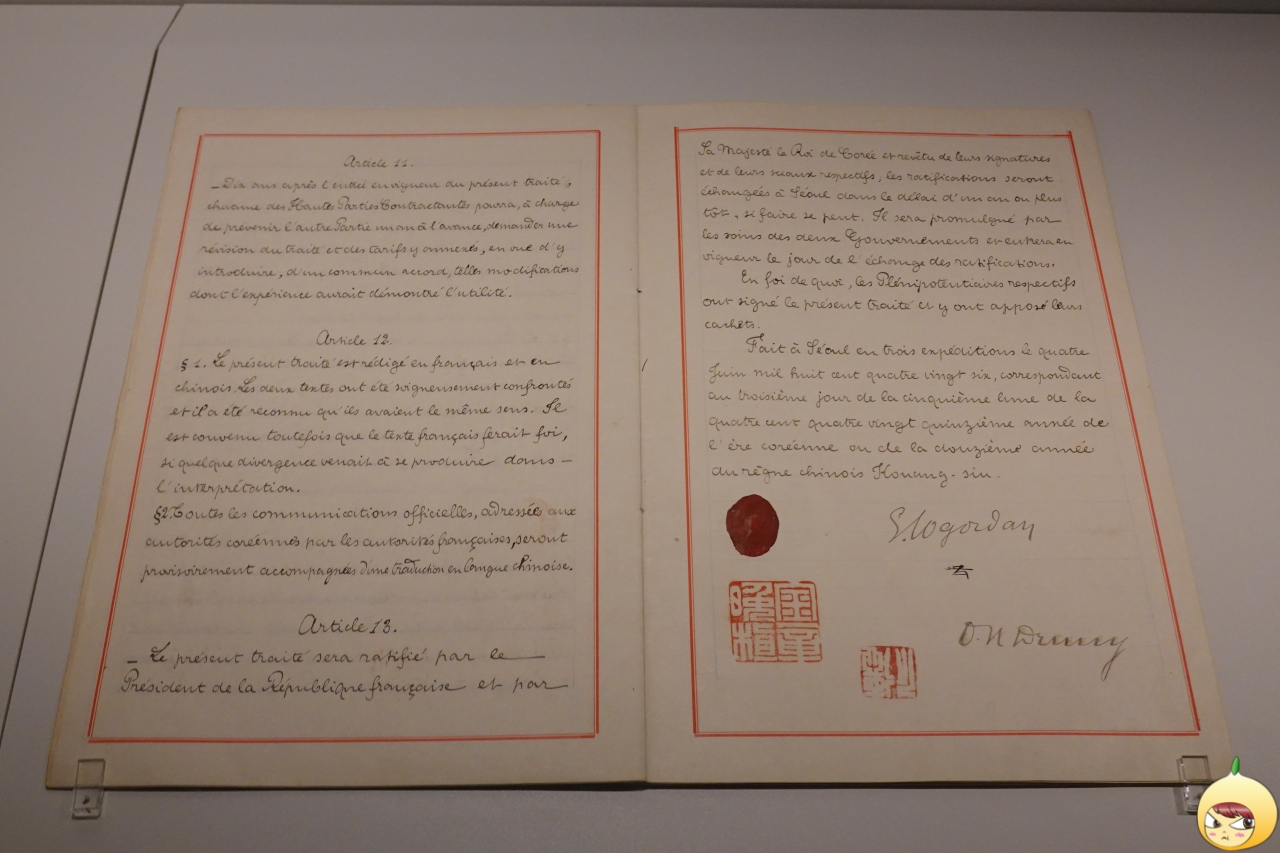 Article 11.
— Dix ans après l'entrée en vigueur du présent traité,
chacune des Hautes Parties Contractantes pourra, à charge
de prévenir l'autre Partie un an à l'avance, demander une
révision du traité et des tarifs y annexés, en vue d'y
introduire, d'un commun accord, telles modifications
dont l'expérience aurait démontré l'utilité.
Article 12.
§ 1. Le présent traité est rédigé en français et en
chinois. Les deux textes ont été soigneusement confrontés
et il a été reconnu qu'ils avaient le même sens. Il
est convenu toutefois que le texte français ferait foi,
si quelque divergence venait à se produire dans —
l'interprétation.
§2. Toutes les communications officielles, adressées aux
autorités coréennes par les autorités françaises, seront
provisoirement accompagnées d'une traduction en langue chinoise.
Article 13.
— Le présent traité sera ratifié par le —
Président de la République française et par —
Sa Majesté le Roi de Corée et revêtu de leurs signatures
et de leurs sceaux respectifs, les ratifications seront
échangées à Séoul dans le délai d'un an ou plus
tôt, si faire se peut. Il sera promulgué par
les soins des deux Gouvernements et entrera en
vigueur le jour de l'échange des ratifications.
En foi de quoi, les Plénipotentiaires respectifs
ont signé le présent traité et y ont apposé leurs
cachets.
Fait à Séoul en trois expéditions le quatre
Juin mil huit cent quatre vingt six, correspondant
au troisième jour de la cinquième lune de la
quatre cent quatre vingt quinzième année de
l'ère coréenne ou de la douzième année
du règne chinois Kouang-siu.
O. N. Denny